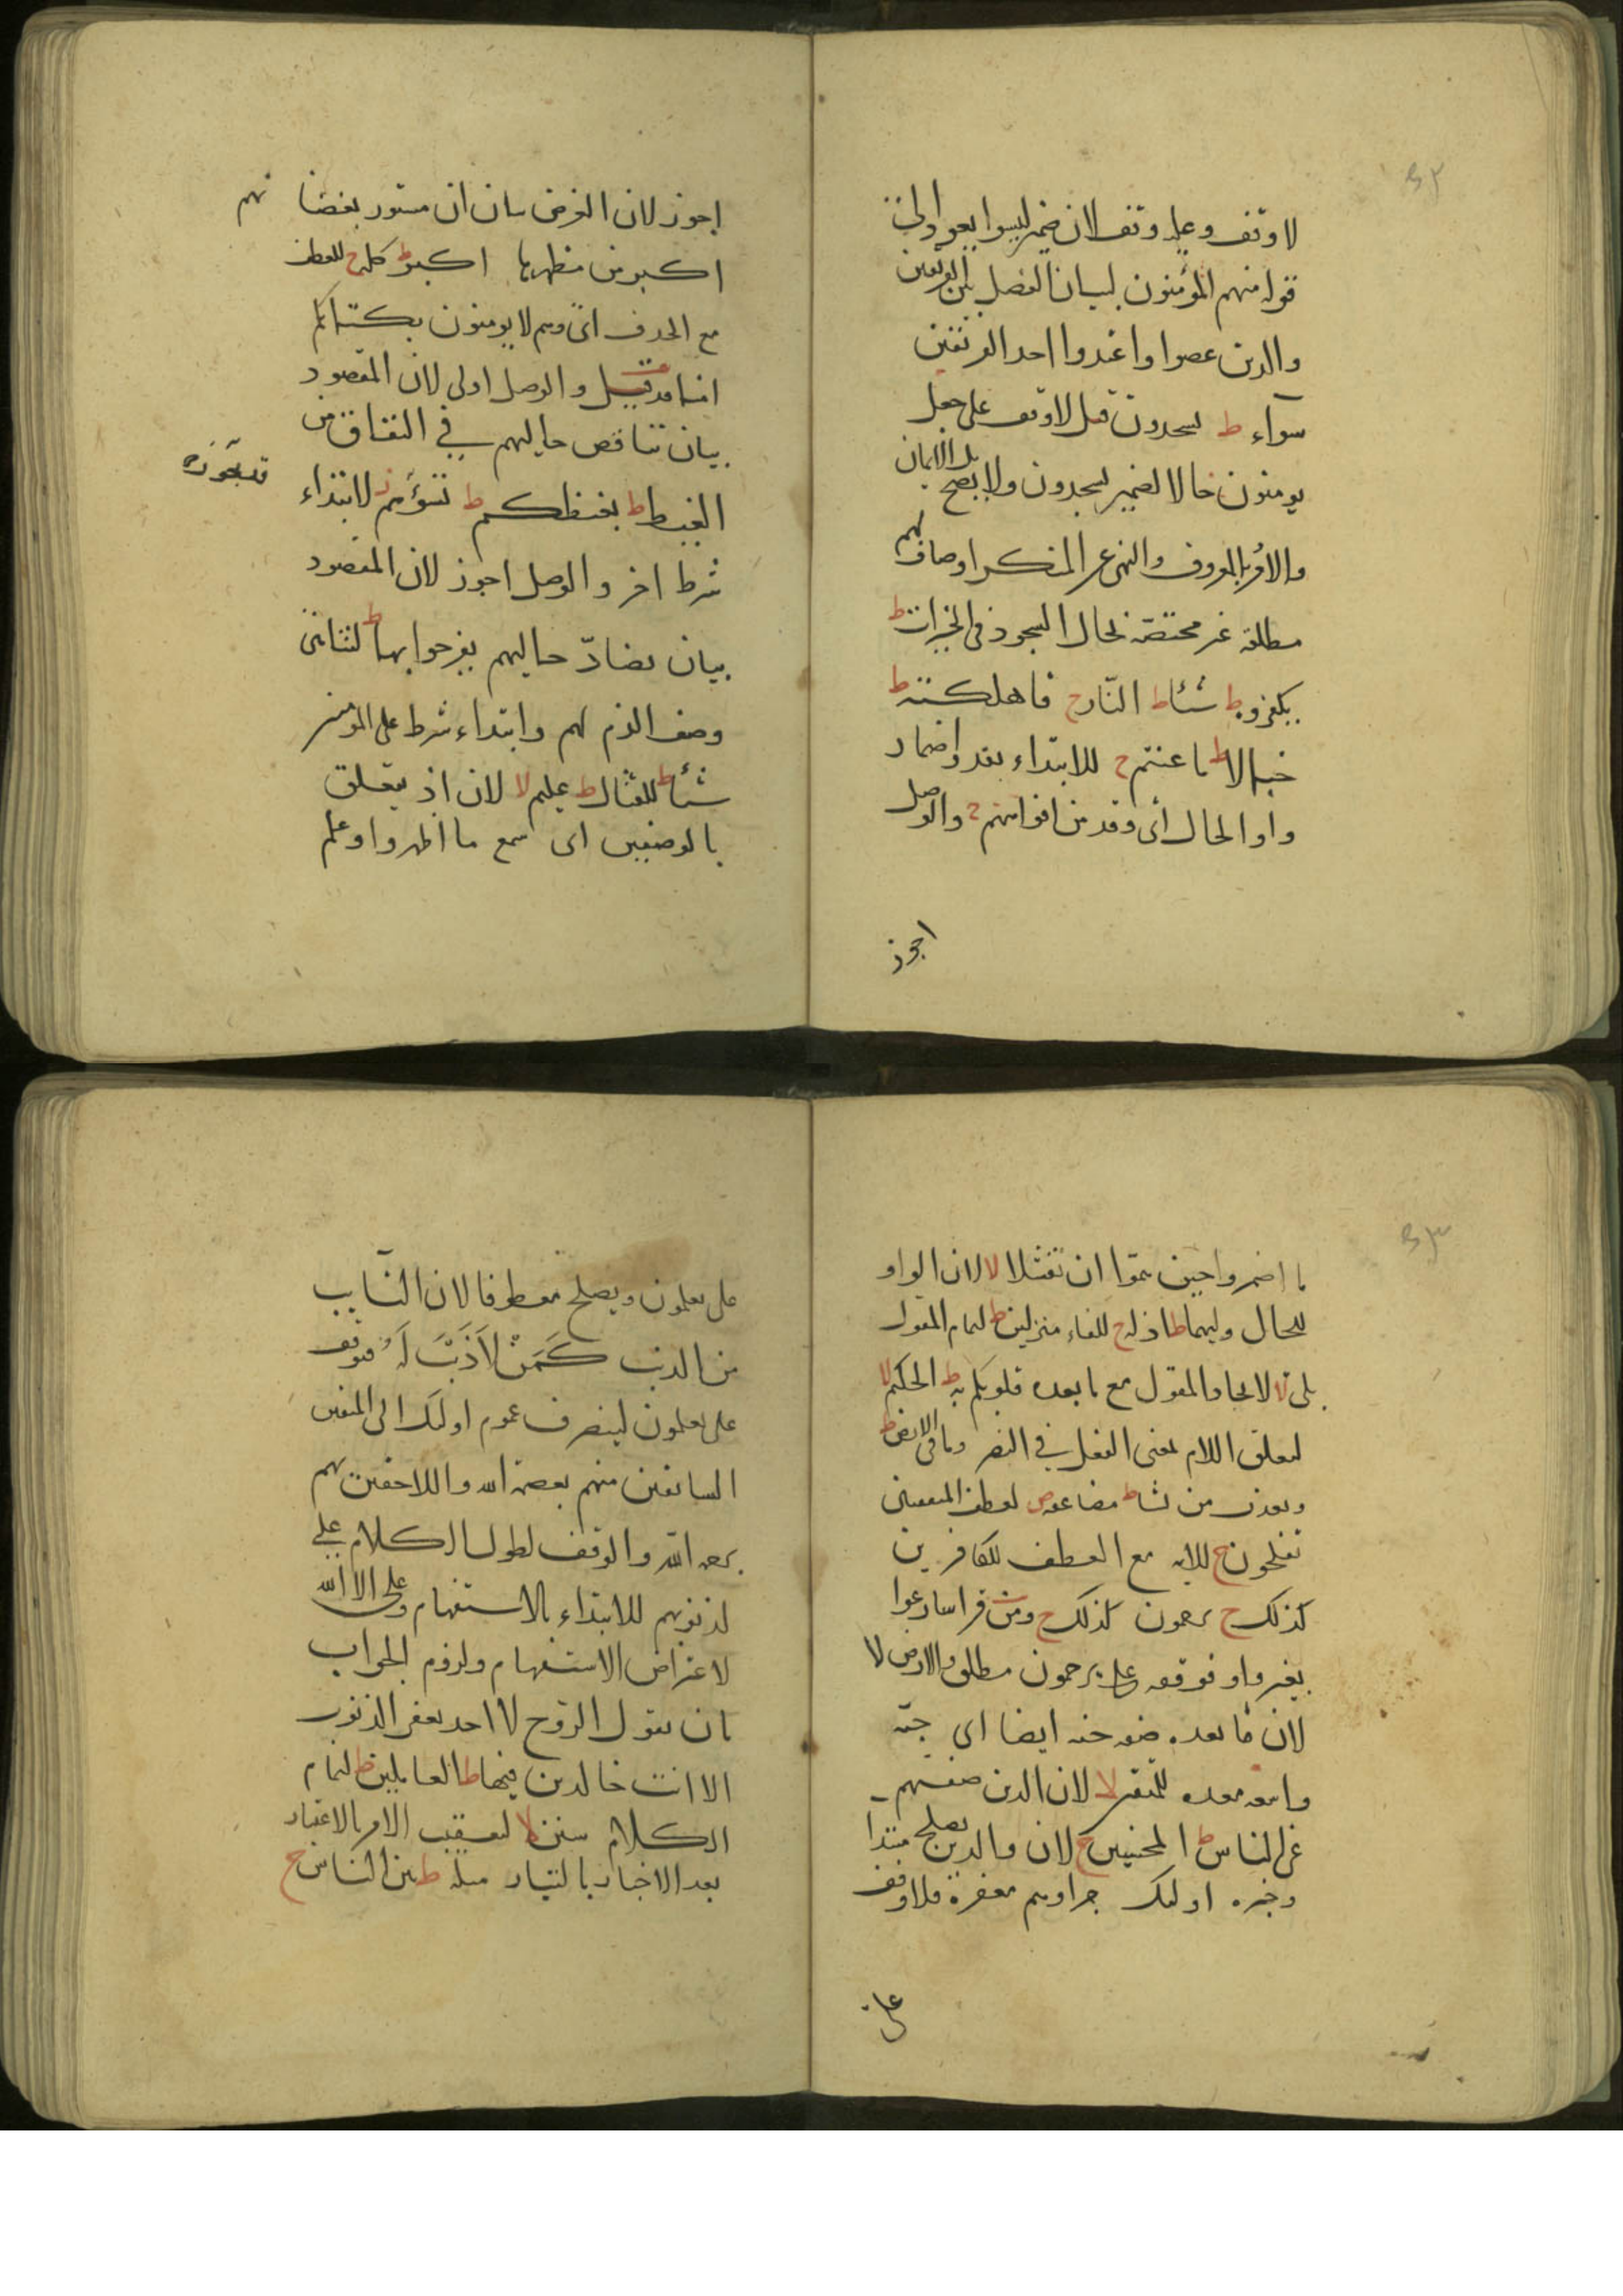 لا وقف وعليه وقف لان ضمير ليسوا يعود الى
قوله منهم المؤمنون لبيان الفصل بين الفريقين
والذين عصوا واعتدوا احد الفريقين
سواء ط يسجدون قيل لا وقف على جعل
يومنون حالا لضمير يسجدون ولا يصح بل الايمان
والامر بالمعروف والنهى عن المنكر اوصاف لهم
مطلقة غير مختصة بحال السجود فى الخيرات ط
يكفروه ط شيئا ط النار ح فاهلكته ط
خبالا ط ما عنتم ح للابتداء بقد واضمار
واو الحال اى وقد من افواههم ح والوصل
اجوز
اجوز لان الغرض بيان ان مستور بغضائهم
اكبر من مظهرها اكبر ط كله ح للعطف
مع الحذف اى وهم لا يومنون بكتابكم
امنا قد قيل والوصل اولى لان المقصود
بيان تناقض حاليهم فى النفاق من
الغيظ ط بغيظكم ط تسؤهم ز لابتداء
قد يجوزه
شرط اخر والوصل اجوز لان المقصود
بيان تضادّ حاليهم يفرحوا بها ط لتناهى
وصف الذم لهم وابتداء شرط على المؤمنين
شيئا ط للقتال ط عليم لا لان اذ يتعلق
بالوصفين اى سمع ما اظهروا وعلم
ما اضمروا حين همّوا ان تفشلا لا لان الواو
للحال وليهما ط اذلة ح للفاء منزلين ط لتمام المقول
بلى لا لاتحاد المقول مع ما بعده قلوبكم به ط الحكيم لا
لتعلق اللام بمعنى الفعل فى النصر وما فى الارض ط
ويعذب من يشاء ط مضاعفة ص لعطف المتفقين
تفلحون ح للاية مع العطف للكافرين
كذلك ح ترحمون كذلك ح ومن قرا سارعوا
بغير واو فوقفه على ترحمون مطلق والارض لا
لان ما بعده صفة جنة ايضا اى جنة
واسعة معدة للمتقين لا لان الذين صفتهم
عن الناس ط المحسنين ح لان والذين يصلح مبتدا
وخبره اولئك جزاوهم مغفرة فلا وقف
على
على يعلمون ويصلح معطوفا لان التايب
من الذنب كَمَنْ لاَ ذَنْبَ لَهُ فوقف
على يعلمون لينصرف عموم اولئك الى المتقين
السابقين منهم بعصمة الله واللاحقين بهم
برحمة الله والوقف لطول الكلام على
لذنوبهم للابتداء بالاستفهام وعلى الا الله
لاعتراض الاستفهام ولزوم الجواب
بان يقول الروح لا احد يغفر الذنوب
الا انت خالدين فيها ط العاملين ط لتمام
الكلام سنن لا لتعقيب الامر بالاعتبار
بعد الاخبار بالتبار مثله ط بين الناس ح